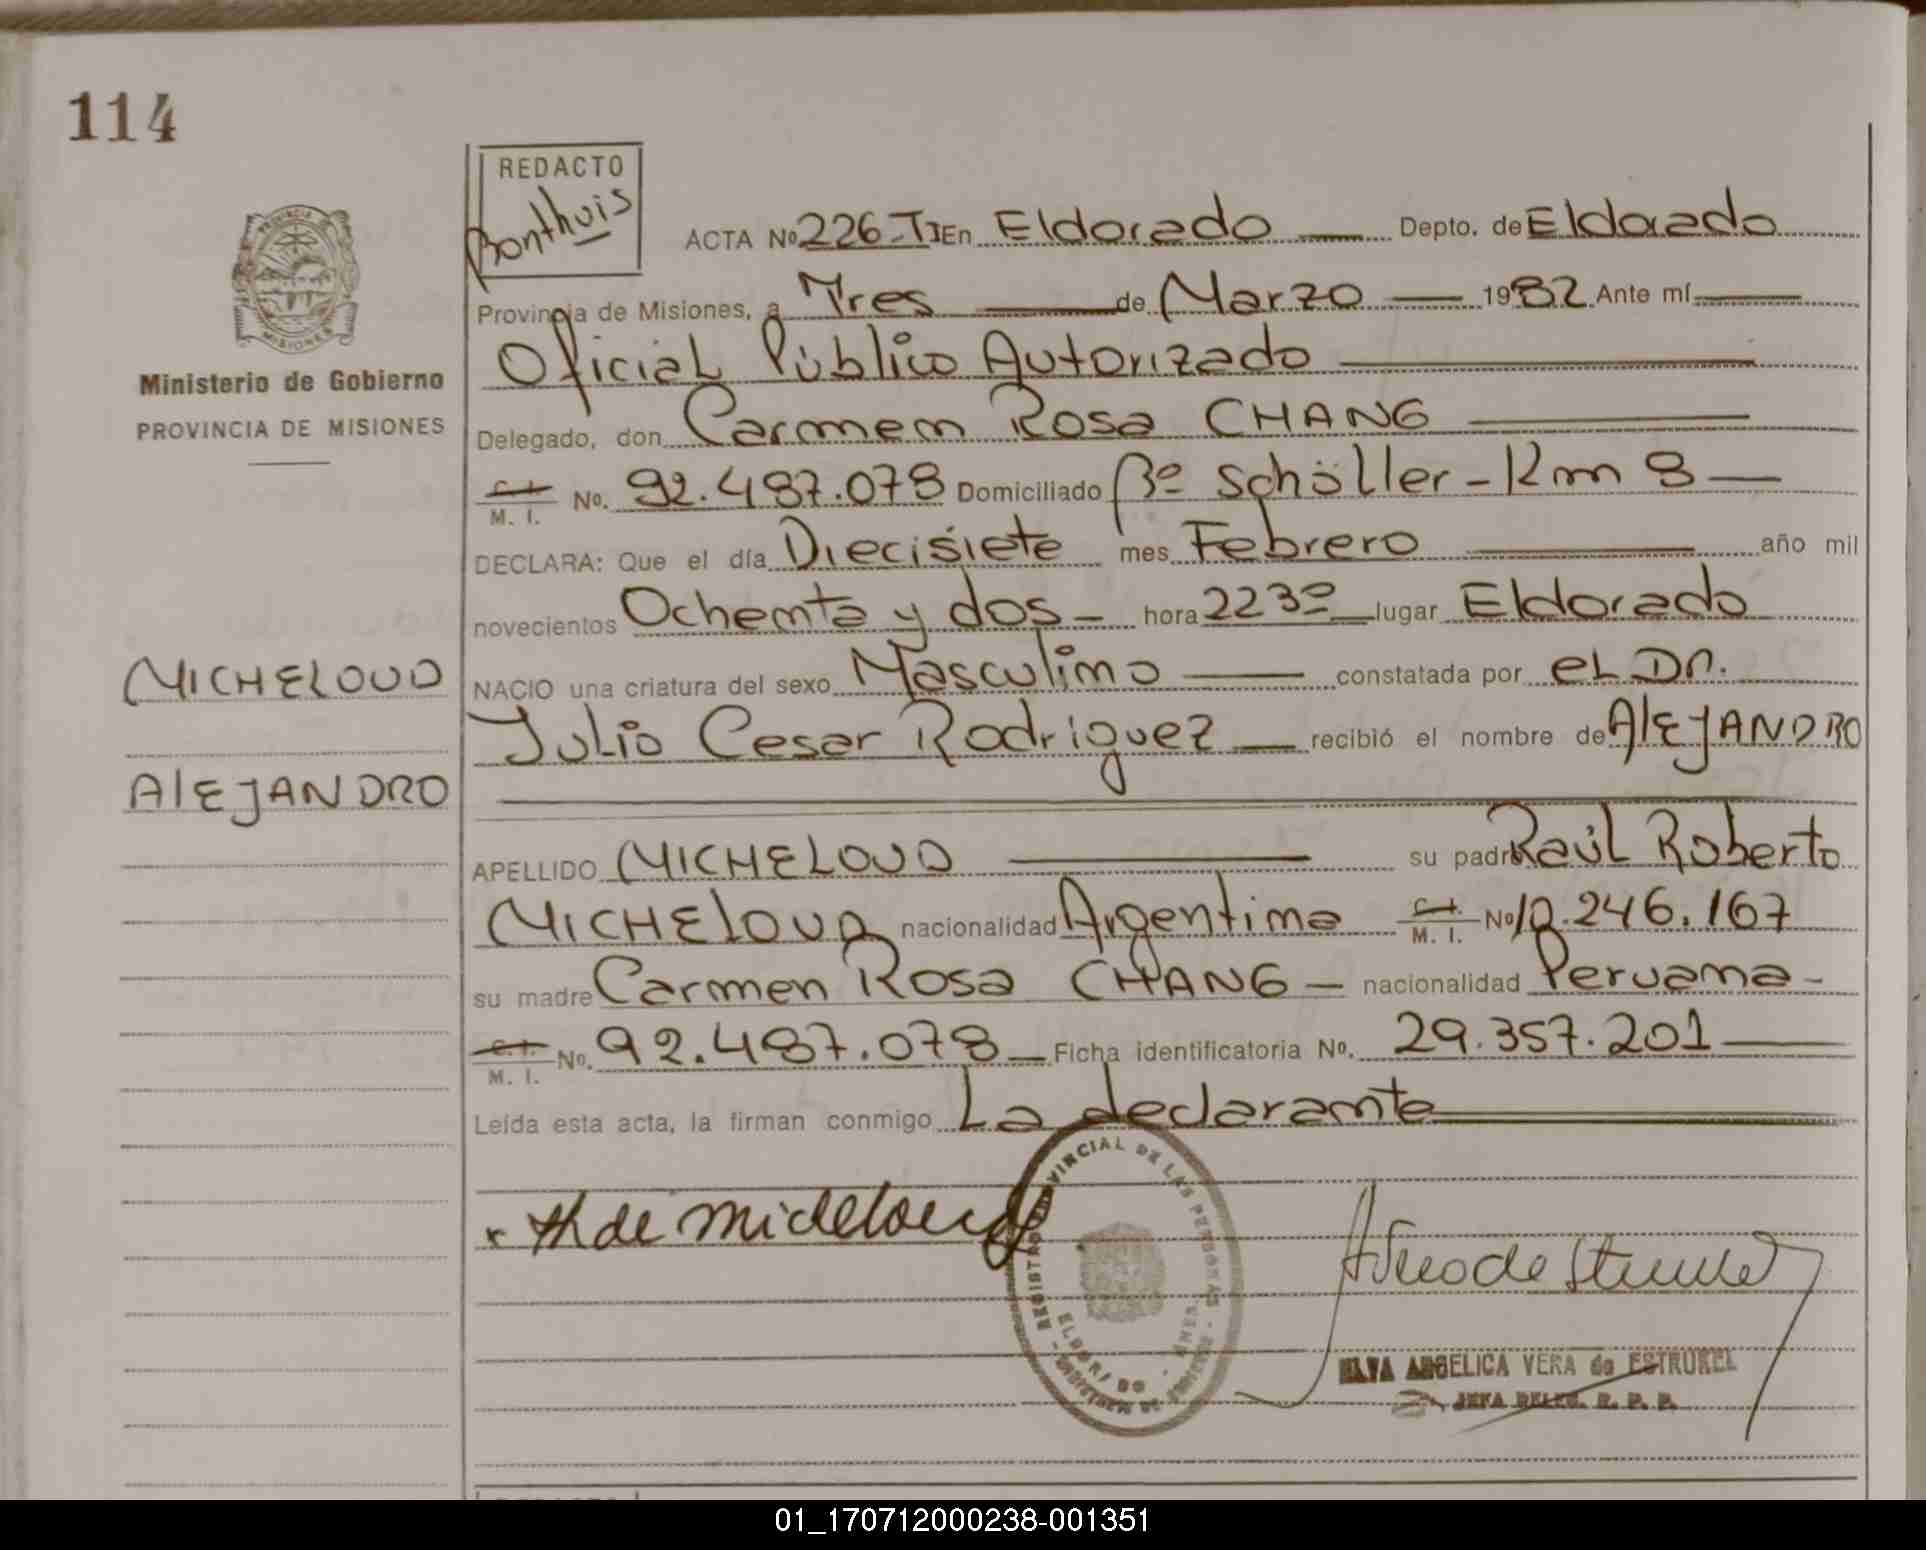 114
REDACTO
Bonthuis
ACTA No 226-TI En Eldorado Depto. de Eldorado
Provincia de Misiones, a Tres de Marzo 1982 Ante mí
Oficial Público Autorizado
Ministerio de Gobierno
PROVINCIA DE MISIONES
Delegado, don Carmem Rosa CHANG
C. I. M. I. No. 92.487.078 Domiciliado Bº Schöller - Km 8
DECLARA: Que el día Diecisiete mes Febrero año mil
novecientos Ochenta y dos hora 2230 lugar Eldorado
MICHELOUD
NACIO una criatura del sexo Masculino constatada por el Dr.
Julio Cesar Rodriguez recibió el nombre de AlEJANDRO
AlEJANDRO
APELLIDO MICHELOUD su padre Raúl Roberto
MICHELOUD nacionalidad Argentina C. I. M. I. No 10.246.167
su madre Carmen Rosa CHANG nacionalidad Peruana
C. I. M. I. No. 92.487.078 Ficha identificatoria No. 29.357.201
Leída esta acta, la firman conmigo La declarante
REGISTRO PROVINCIAL DE LAS PERSONAS
ELDORADO
MISIONES
de Micheloud
ELVA ANGELICA VERA de ESTRUKEL
JEFA DELEG. R. P. P.
01_170712000238-001351